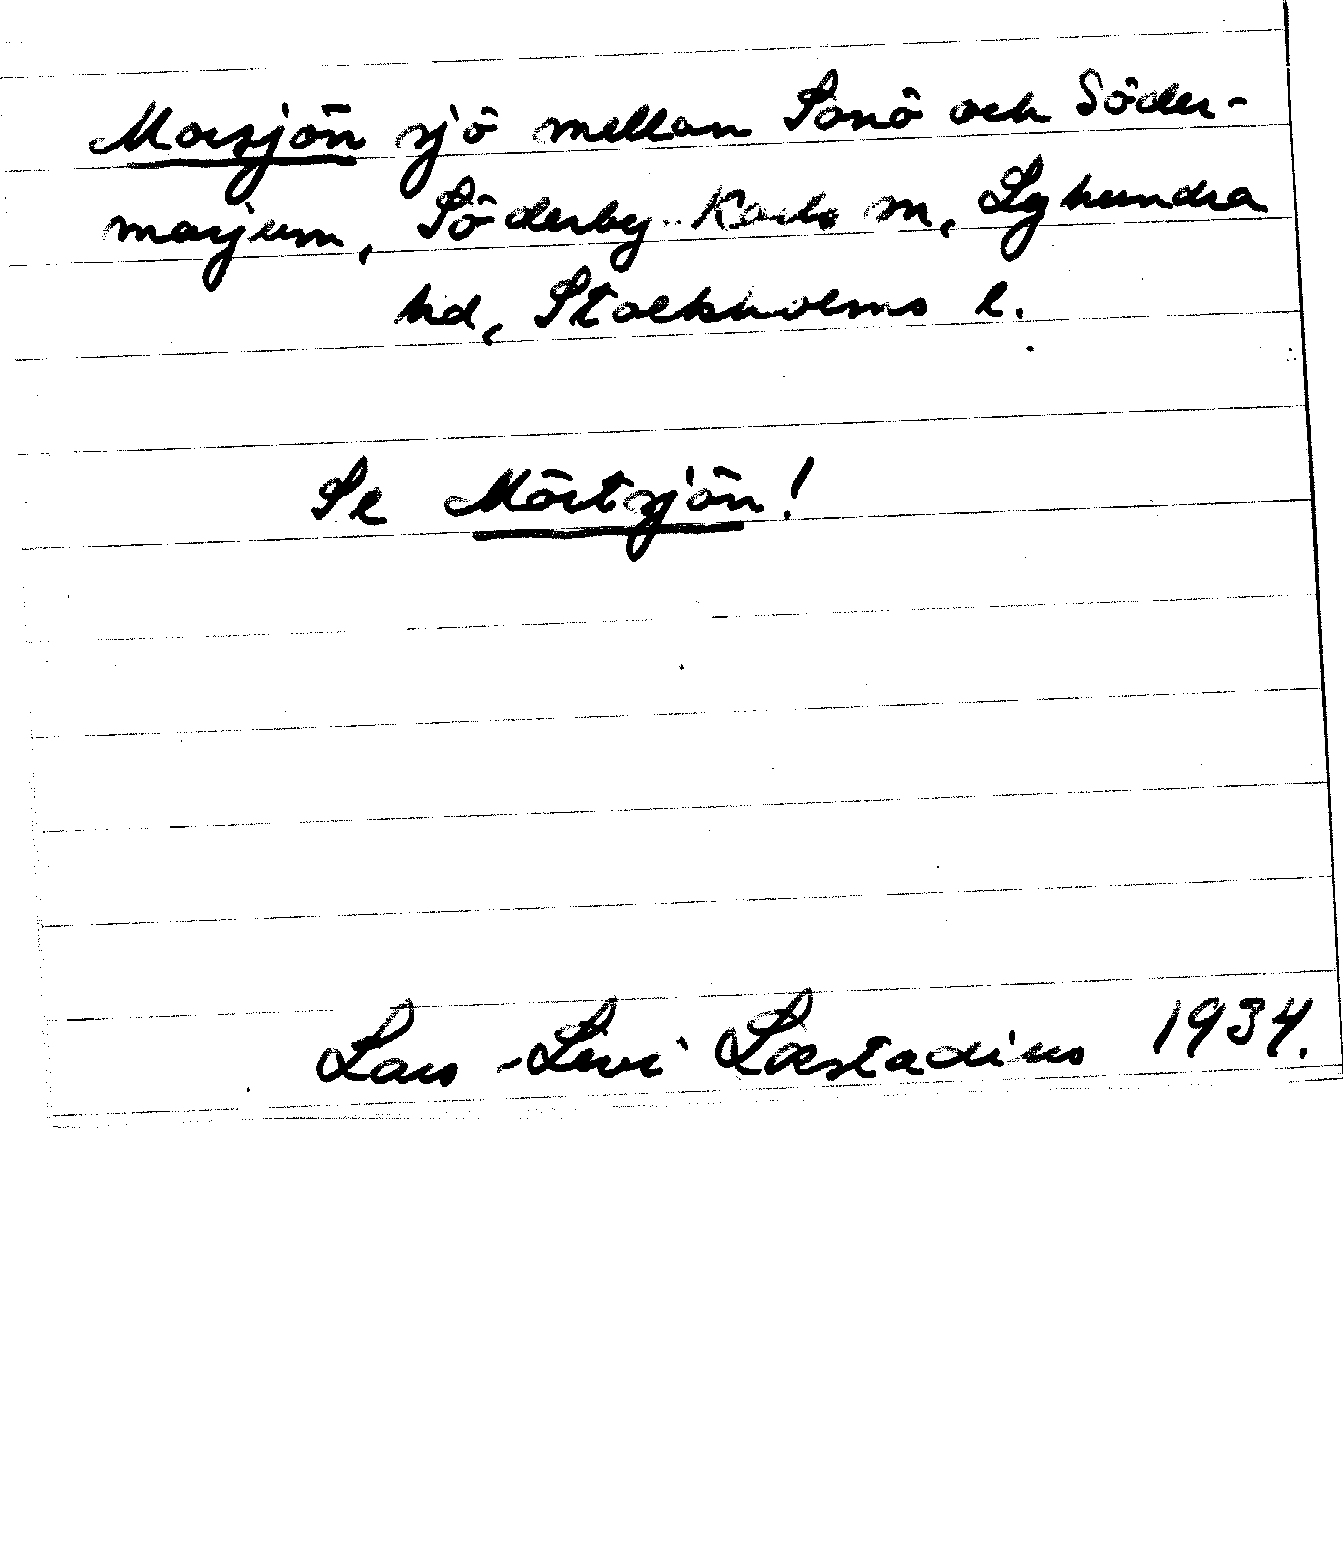 Morsjön sjö mellan Sanö och Söder-
marjum, Söderby-Karls sn, Lyhundra
hd, Stockholms l.
Se Mörtsjön!
Lars-Levi Læstadius 1934.